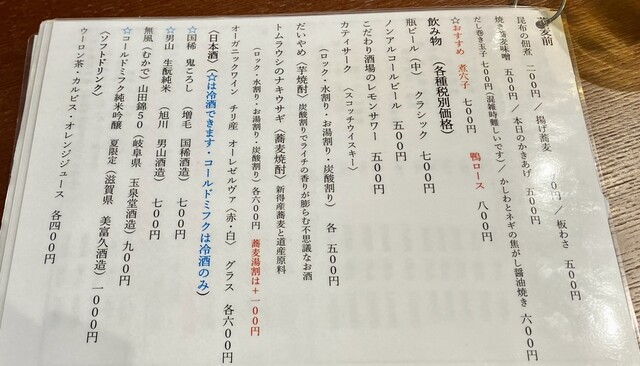 麦前
昆布の佃煮 二〇〇円 / 揚げ蕎麦 〇円 / 板わさ 五〇〇円
焼き蕎麦味噌 五〇〇円 / 本日のかきあげ 五〇〇円
だし巻き玉子 七〇〇円（混雑時難しいです）/ かしわとネギの焦がし醤油焼き 六〇〇円
☆おすすめ 煮穴子 七〇〇円 鴨ロース 八〇〇円
飲み物 （各種税別価格）
瓶ビール（中） クラシック 七〇〇円
ノンアルコールビール 五〇〇円
こだわり酒場のレモンサワー 五〇〇円
カティサーク （スコッチウイスキー）
（ロック・水割り・お湯割り・炭酸割り） 各 五〇〇円
だいやめ（芋焼酎）炭酸割りでライチの香りが膨らむ不思議なお酒
トムラウシのナキウサギ（蕎麦焼酎）新得産蕎麦と道産原料
（ロック・水割り・お湯割り・炭酸割り）各六〇〇円 蕎麦湯割は＋一〇〇円
オーガニックワイン チリ産 オーレゼルヴァ（赤・白） グラス 各六〇〇円
（日本酒）（☆は冷酒できます・コールドミフクは冷酒のみ）
☆国稀 鬼ころし （増毛 国稀酒造） 七〇〇円
☆男山 生酛純米 （旭川 男山酒造） 七〇〇円
無風（むかで）山田錦50（岐阜県 玉泉堂酒造）九〇〇円
☆コールドミフク純米吟醸 夏限定（滋賀県 美富久酒造）一〇〇〇円
（ソフトドリンク）
ウーロン茶・カルピス・オレンジジュース 各四〇〇円